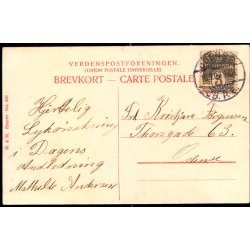 VERDENSPOSTFORENINGEN.
(UNION POSTALE UNIVERSELLE)
BREVKORT — CARTE POSTALE
Hjertelig
Lykønskning
i Dagens
Anledning
Mathilde Andersen
Frk Kristjane Jørgensen
Thorsgade 63.
Odense
3